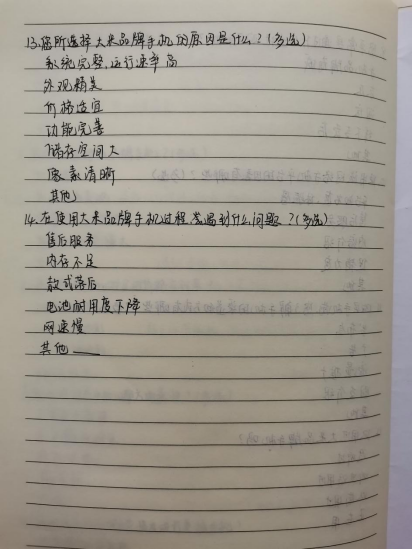 13.您所选择大米品牌手机的原因是什么？(多选)
系统完整,运行速率高
外观精美
价格适宜
功能完善
储存空间大
像素清晰
其他
14.在使用大米品牌手机过程常遇到什么问题？(多选)
售后服务
内存不足
款式落后
电池耐用度下降
网速慢
其他___